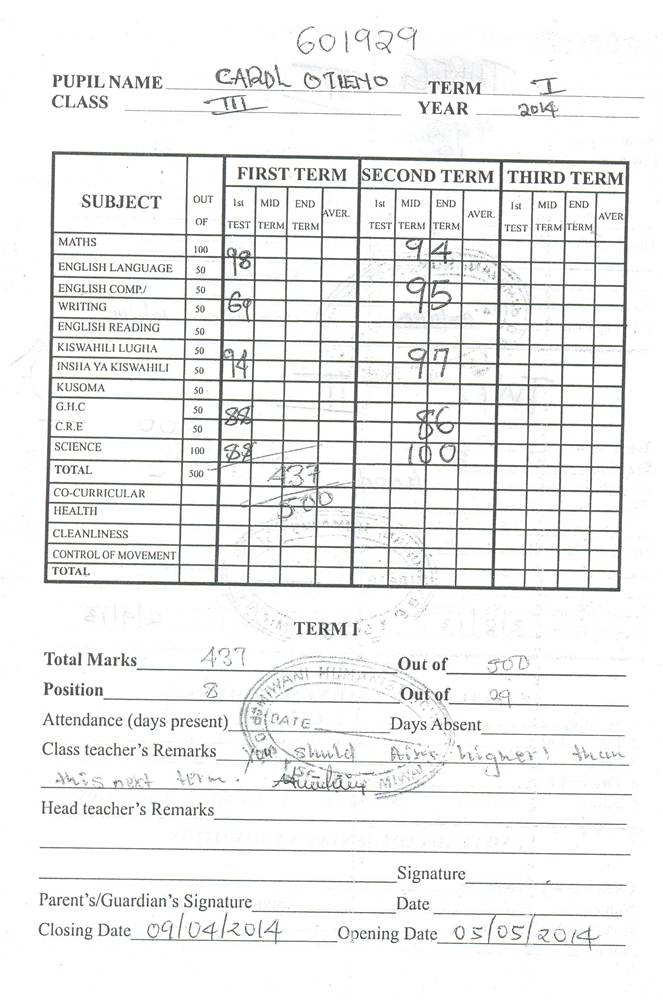 601929
PUPIL NAME CAROL OTIENO TERM I
CLASS III YEAR 2014
SUBJECT OUT OF FIRST TERM SECOND TERM THIRD TERM
1st TEST MID TERM END TERM AVER. 1st TEST MID TERM END TERM AVER. 1st TEST MID TERM END TERM AVER
MATHS 100 98 94
ENGLISH LANGUAGE 50
ENGLISH COMP./ 50 69 95
WRITING 50
ENGLISH READING 50
KISWAHILI LUGHA 50 94 97
INSHA YA KISWAHILI 50
KUSOMA 50
G.H.C 50 88 86
C.R.E 50
SCIENCE 100 88 100
TOTAL 500 437
CO-CURRICULAR 500
HEALTH
CLEANLINESS
CONTROL OF MOVEMENT
TOTAL
TERM I
Total Marks 437 Out of 500
Position 8 Out of 29
Attendance (days present) DATE Days Absent
Class teacher's Remarks You shuld Aim higher! than
this next term.
Head teacher's Remarks
Signature
Parent's/Guardian's Signature Date
Closing Date 09/04/2014 Opening Date 05/05/2014